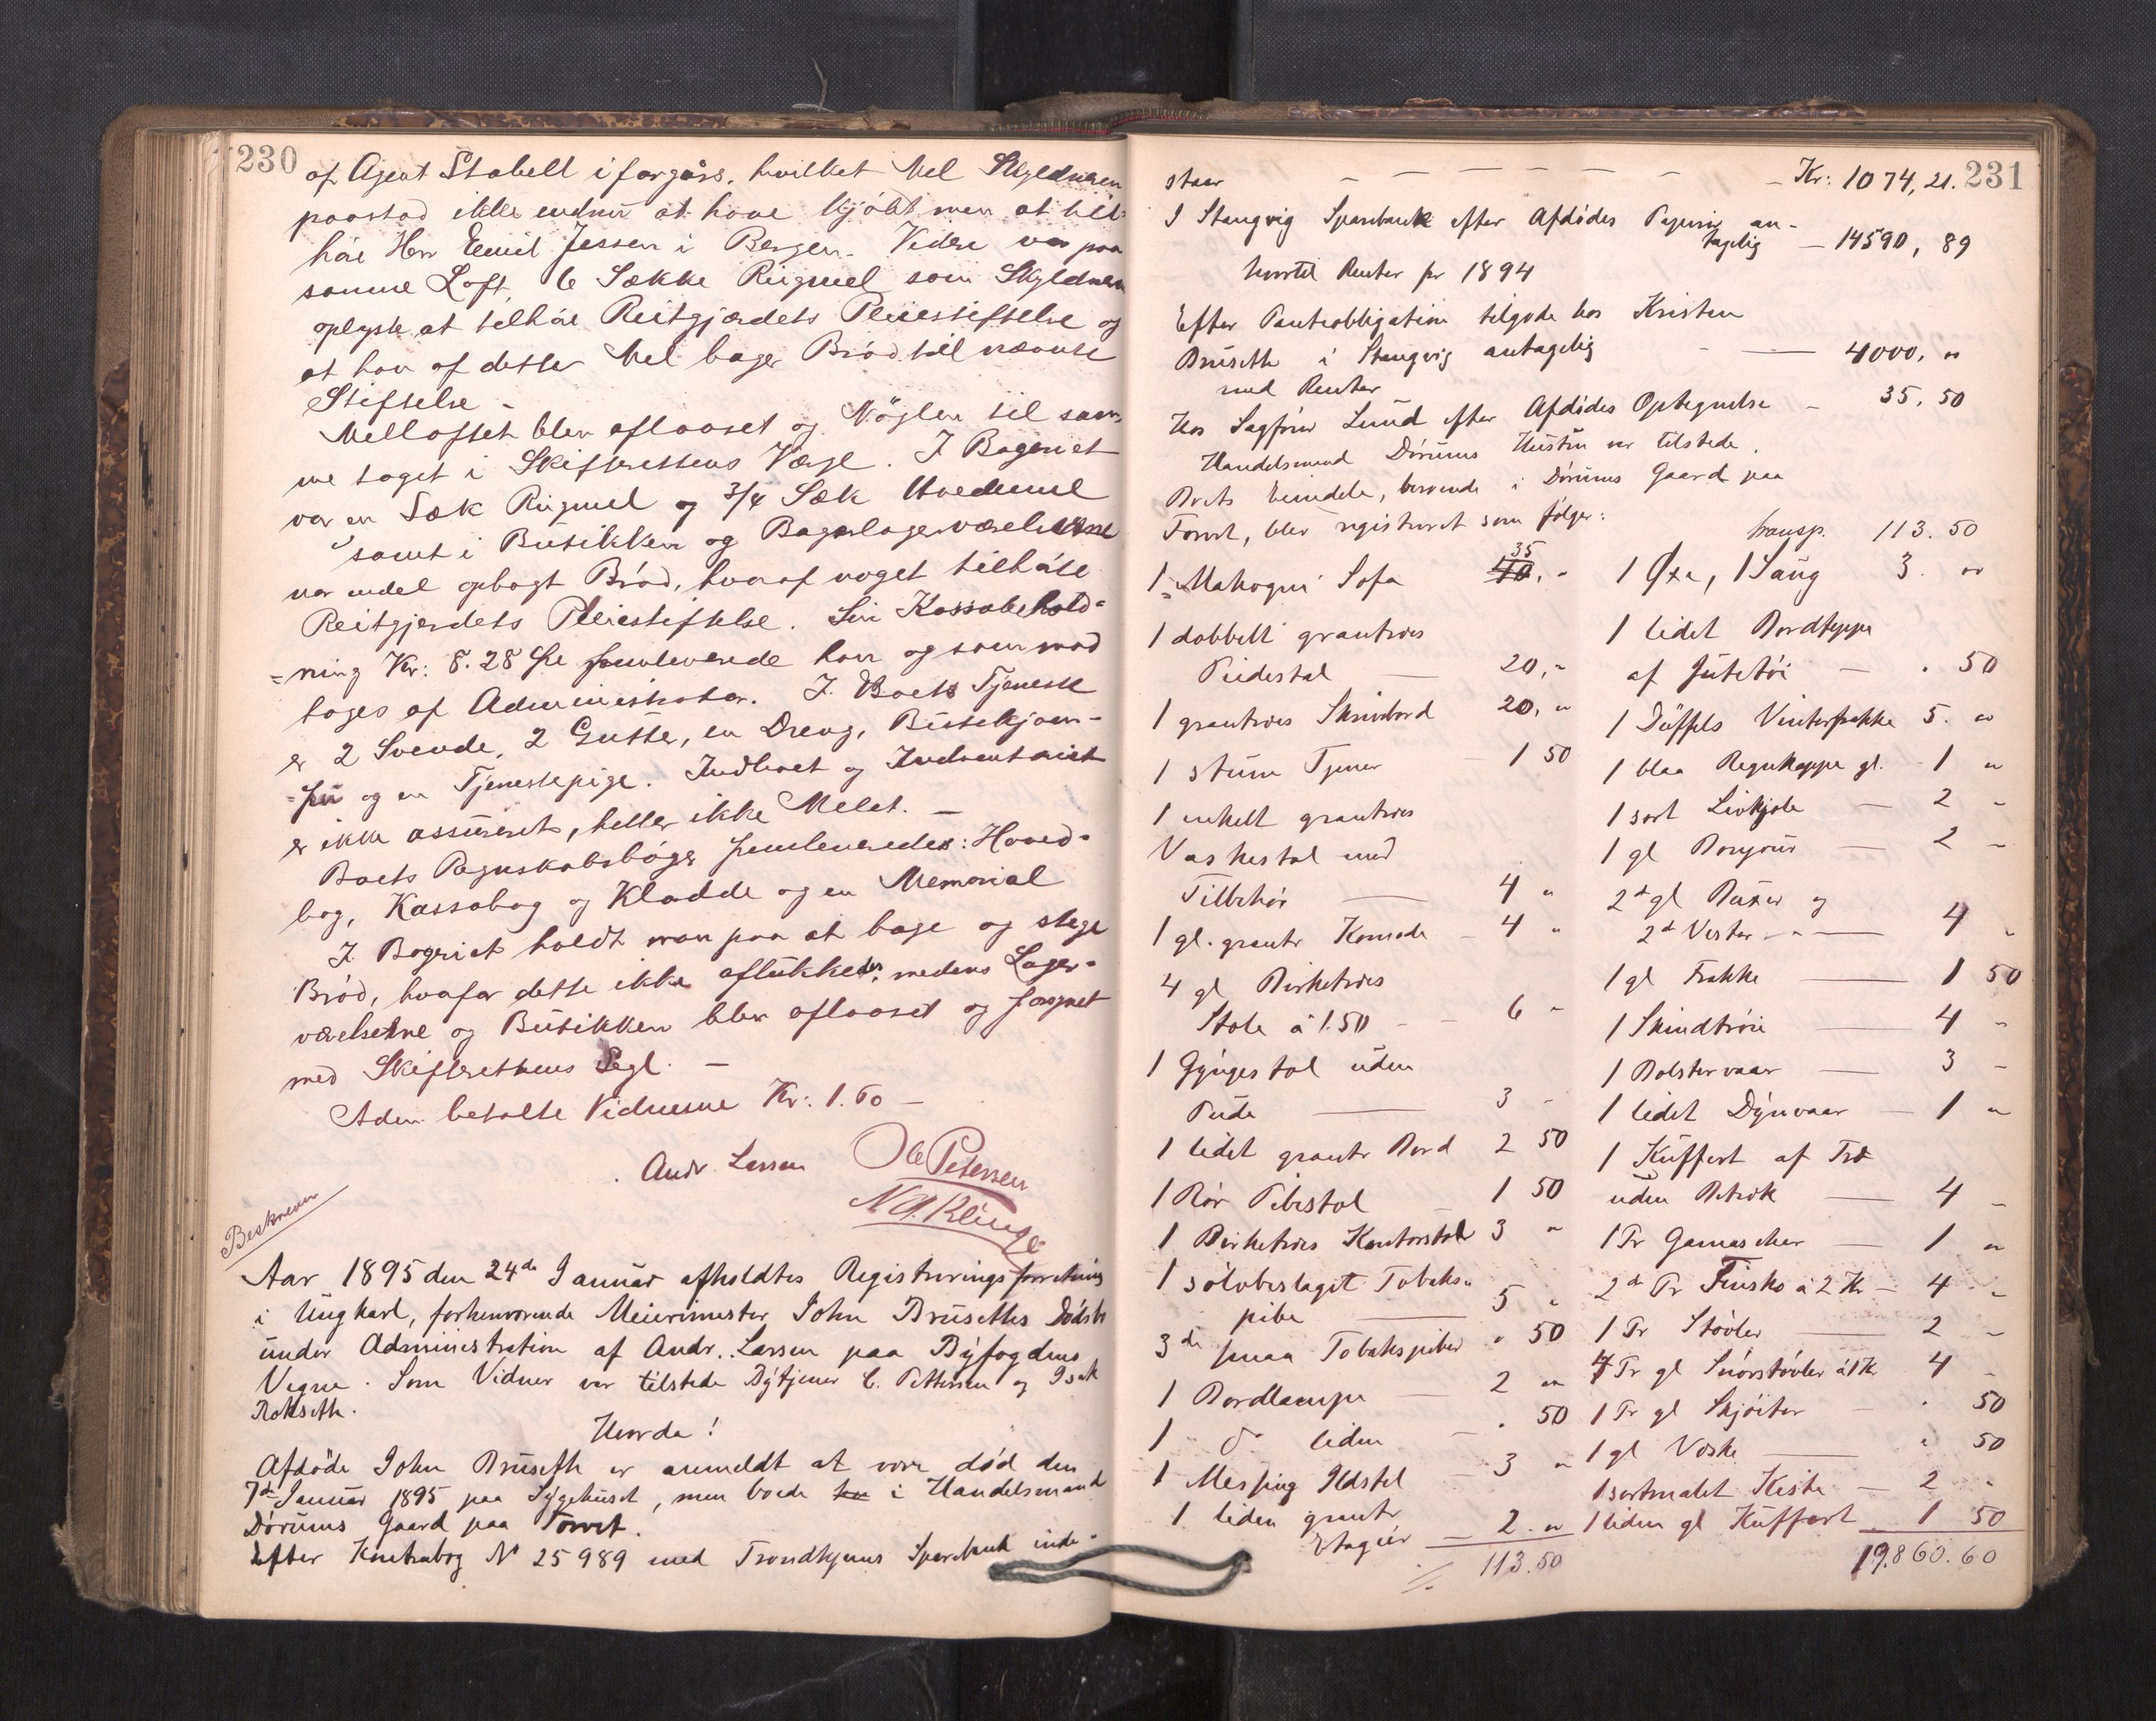 230
af Agent Stabell i forgårs, hvilket Mel Skyldneren
paastod ikke endnu at have kjöbt men at til-
höre Herr Emil Jessen i Bergen. Videre var paa
samme Loft 6 Sække Rugmel som Skyldneren
oplyste at tilhöre Reitgjærdets Pleiestiftelse og
at han af dette Mel bager Bröd till nævnte
Stiftelse –
Melloftet blev aflaaset og Nöglen til sam-
me taget i Skifterettens Værge. I Bageriet
var en Sæk Rugmel og 3/4 Sæk Hvedemel
samt i Butikken og Bagerlagerværelserne
var endel opbagt Bröd, hvoraf noget tilhörte
Reitgjerdets Pleiestiftelse. Sin Kassabehold-
ning Kr: 8.28 Öre fremleverede han og som mod
toges af Administrator. I Boets Tjeneste
er 2 Svende, 2 Gutter, en Dreng, Butikjom-
fru og en Tjenestepige. Indboet og Inventariet
er ikke assureret, heller ikke Melet. –
Boets Regnskabsböger fremleveredes: Hoved-
bog, Kassabog og Kladde og en Memorial
I Bageriet holdt man paa at bage og stege
Bröd, hvorfor dette ikke aflukkedes, medens Lager-
værelserne og Butikken blev aflaaset og forsynet
med Skifterettens Segl. –
Adm. betalte Vidnerne Kr: 1.60 –
Andr. Larsen Ole Petersen
N A. Klinge
Beskreven
Aar 1895 den 24de Januar afholdtes Registreringsforretning
i Ungkarl, forhenværende Meierimester John Brusethes Dödsbo
under Administration af Andr. Larsen paa Byfogdens
Vegne. Som Vidner var tilstede Bytjener C. Pettersen og Isak
Rokseth.
Hvorda!
Afdöde John Bruseth er anmeldt at være död den
7de Januar 1895 paa Sygehuset, men boede i Handelsmand
Dörums Gaard paa Torvet.
Efter Kontrabog No 25989 med Trondhjems Sparebank inde-
231
staar – – – – – – – Kr: 1074,21.
I Stangvig Sparebank efter Afdödes Papirer an-
tagelig – 14590,89
hvortil Renter pr 1894
Efter Panteobligation tilgode hos Kristen
Bruseth i Stangvig antagelig – 4000, "
med Renter
Hos Sagförer Lund efter Afdödes Optegnelse – 35,50
Handelsmand Dörums Hustru var tilstede.
Boets Eiendele, beroende i Dörums Gaard paa
Torvet, blev registreret som fölger:
1 Mahogni Sofa 40, 35 "
1 dobbelt grantræes
Pidestal 20, "
1 grantræes Skrivebord 20, "
1 stum Tjener 1 50
1 enkelt grantræes
Vaskestol med
Tilbehör 4 "
1 gl. grantr Komode 4 "
4 gl Birketræes
Stole à 1.50 6 "
1 Gyngestol uden
Pude 3 "
1 lidet grantr Bord 2 50
1 Rör Pibestol 1 50
1 Birketræes Kontorstol 3 "
1 sölvbeslaget Tobaks-
pibe 5 "
3de smaa Tobakspiber " 50
1 Bordlampe 2 "
1 do liden " 50
1 Messing Ildstel 3 "
1 liden grantr
Etagiér 2 "
113.50
transp. 113.50
1 Öxe, 1 Saug 3. "
1 lidet Bordteppe
af Jutetöi " 50
1 Düffels Vinterfrakke 5. "
1 blaa Regnkappe gl. 1 "
1 sort Livkjole 2 "
1 gl Bonjour 2 "
2de gl Buxer og
2de Vester 4 "
1 gl Frakke 1 50
1 Skindtröie 4 "
1 Bolstervaar 3 "
1 lidet Dynvaar 1 "
1 Kuffert af Træ
uden Betræk 4 "
1 Pr Gamascher 1 "
2de Pr Finsko à 2 Kr 4 "
1 Pr Stövler 2 "
4 Pr gl Snörstövler à 1 Kr 4 "
1 Pr gl Skjöiter " 50
1 gl Væske " 50
1 sortmalet Kiste 2 "
1 liden gl Kuffert 1 50
19.860.60